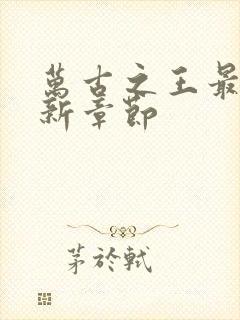 萬古之王最
新章節
茅於軾